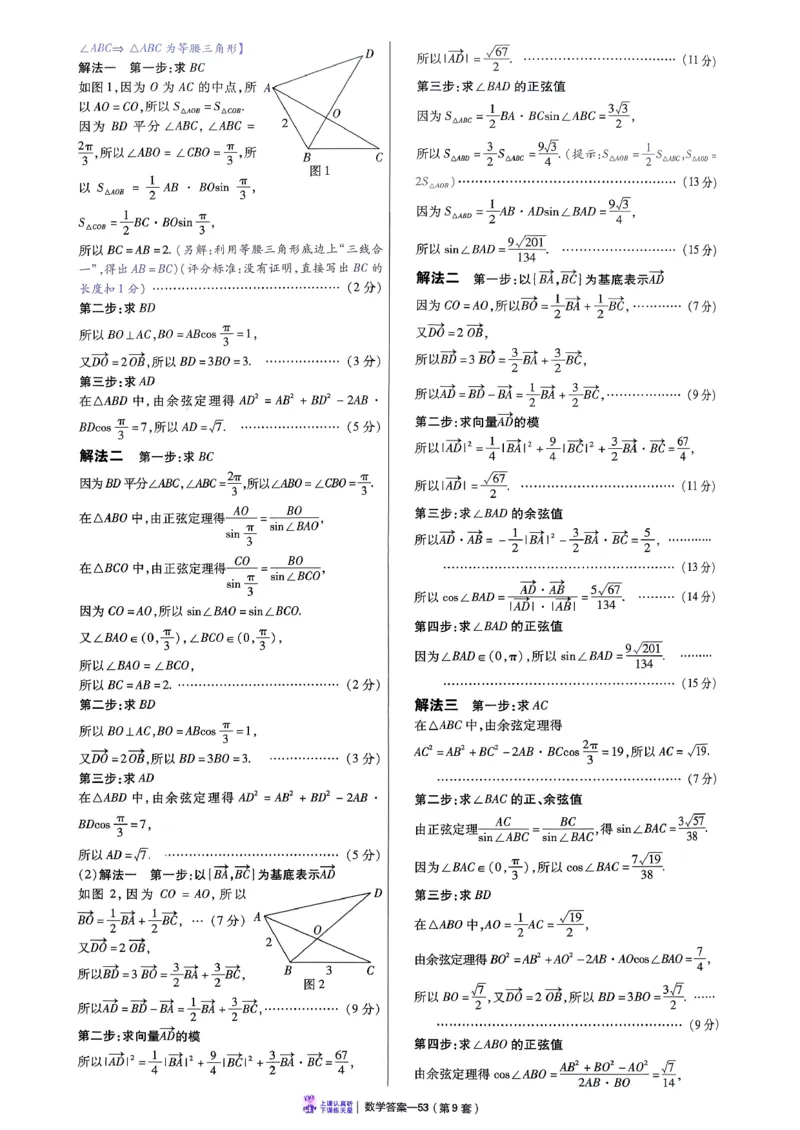 ∠ABC⇒ △ABC为等腰三角形】
解法一 第一步:求 BC
如图1,因为 O 为 AC 的中点,所
以 AO = CO,所以 S△AOB = S△COB.
因为 BD 平分 ∠ABC, ∠ABC =
2π/3,所以∠ABO = ∠CBO = π/3,所
以 S△AOB = 1/2 AB · BOsin π/3,
S△COB = 1/2 BC · BOsin π/3,
A
D
O
2
B
C
图1
所以 BC = AB = 2. (另解:利用等腰三角形底边上“三线合
一”,得出 AB = BC)(评分标准:没有证明,直接写出 BC 的
长度扣1分) …………………………………… (2分)
第二步:求 BD
所以 BO⊥AC,BO = ABcos π/3 = 1,
又DO→ = 2OB→,所以 BD = 3BO = 3. ……………… (3分)
第三步:求 AD
在△ABD 中,由余弦定理得 AD² = AB² + BD² - 2AB ·
BDcos π/3 = 7,所以 AD = √7. …………………… (5分)
解法二 第一步:求 BC
因为BD平分∠ABC,∠ABC = 2π/3,所以∠ABO = ∠CBO = π/3.
在△ABO 中,由正弦定理得 AO/sin π/3 = BO/sin∠BAO,
在△BCO 中,由正弦定理得 CO/sin π/3 = BO/sin∠BCO,
因为 CO = AO,所以 sin∠BAO = sin∠BCO.
又∠BAO∈(0,π/3),∠BCO∈(0,π/3),
所以∠BAO = ∠BCO,
所以 BC = AB = 2. ………………………………… (2分)
第二步:求 BD
所以 BO⊥AC,BO = ABcos π/3 = 1,
又DO→ = 2OB→,所以 BD = 3BO = 3. ……………… (3分)
第三步:求 AD
在△ABD 中,由余弦定理得 AD² = AB² + BD² - 2AB ·
BDcos π/3 = 7,
所以 AD = √7. …………………………………… (5分)
(2)解法一 第一步:以{BA→,BC→}为基底表示AD→
如图 2,因为 CO = AO,所以
BO→ = 1/2 BA→ + 1/2 BC→, … (7分)
又DO→ = 2OB→,
所以BD→ = 3BO→ = 3/2 BA→ + 3/2 BC→,
A
D
O
2
B
3
C
图2
所以AD→ = BD→ - BA→ = 1/2 BA→ + 3/2 BC→, ……………… (9分)
第二步:求向量AD→的模
所以|AD→|² = 1/4|BA→|² + 9/4|BC→|² + 3/2 BA→ · BC→ = 67/4,
所以|AD→| = √67/2. ……………………………… (11分)
第三步:求∠BAD 的正弦值
因为 S△ABC = 1/2 BA · BCsin∠ABC = 3√3/2,
所以 S△ABD = 3/2 S△ABC = 9√3/4. (提示:S△AOB = 1/2 S△ABC,S△AOD =
2S△AOB) ……………………………………………… (13分)
因为 S△ABD = 1/2 AB · ADsin∠BAD = 9√3/4,
所以 sin∠BAD = 9√201/134. ……………………… (15分)
解法二 第一步:以{BA→,BC→}为基底表示AD→
因为 CO = AO,所以BO→ = 1/2 BA→ + 1/2 BC→, ………… (7分)
又DO→ = 2OB→,
所以BD→ = 3BO→ = 3/2 BA→ + 3/2 BC→,
所以AD→ = BD→ - BA→ = 1/2 BA→ + 3/2 BC→, ……………… (9分)
第二步:求向量AD→的模
所以|AD→|² = 1/4|BA→|² + 9/4|BC→|² + 3/2 BA→ · BC→ = 67/4,
所以|AD→| = √67/2. ……………………………… (11分)
第三步:求∠BAD 的余弦值
所以AD→ · AB→ = - 1/2|BA→|² - 3/2 BA→ · BC→ = 5/2, …………
………………………………………………… (13分)
所以 cos∠BAD = AD→ · AB→/|AD→| · |AB→| = 5√67/134. ……… (14分)
第四步:求∠BAD 的正弦值
因为∠BAD∈(0,π),所以 sin∠BAD = 9√201/134. ………
………………………………………………… (15分)
解法三 第一步:求 AC
在△ABC 中,由余弦定理得
AC² = AB² + BC² - 2AB · BCcos 2π/3 = 19,所以 AC = √19.
…………………………………………………… (7分)
第二步:求∠BAC 的正、余弦值
由正弦定理 AC/sin∠ABC = BC/sin∠BAC,得 sin∠BAC = 3√57/38.
因为∠BAC∈(0,π/3),所以 cos∠BAC = 7√19/38.
第三步:求 BD
在△ABO 中,AO = 1/2 AC = √19/2,
由余弦定理得 BO² = AB² + AO² - 2AB · AOcos∠BAO = 7/4,
所以 BO = √7/2,又DO→ = 2OB→,所以 BD = 3BO = 3√7/2. ……
…………………………………………………… (9分)
第四步:求∠ABO 的正弦值
由余弦定理得 cos∠ABO = AB² + BO² - AO²/2AB · BO = √7/14,
上课认真听
下课练天星
数学答案—53(第9套)